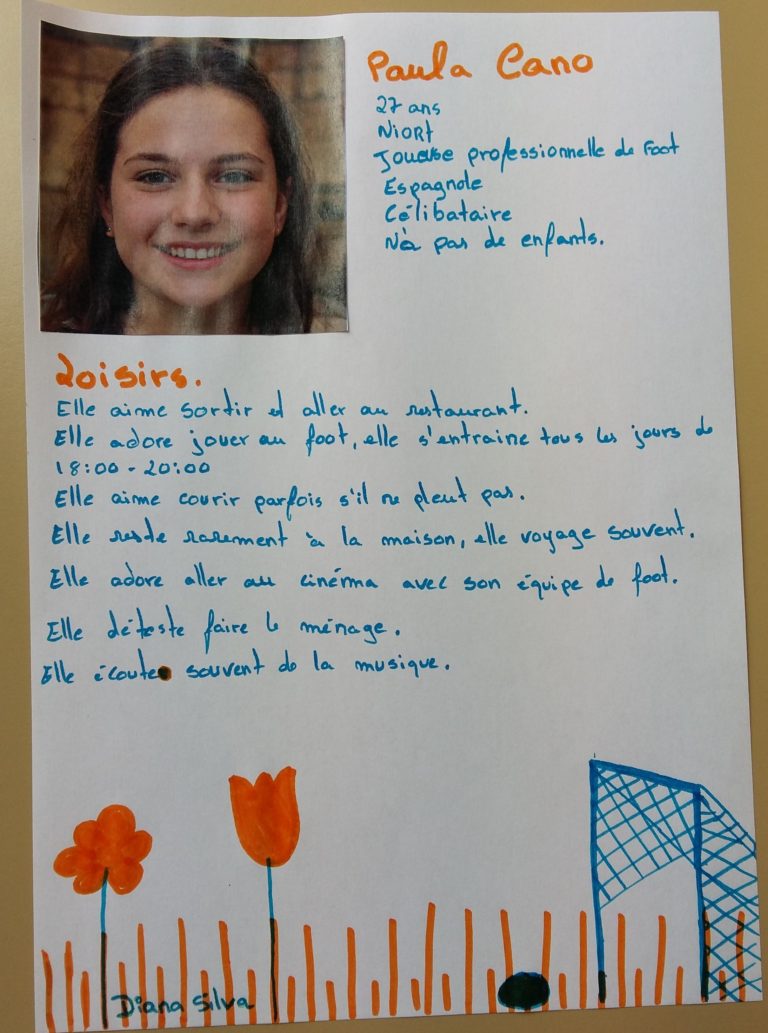 Paula Cano
27 ans
Niort
Joueuse professionnelle de Foot
Espagnole
Célibataire
N'a pas de enfants.
Loisirs.
Elle aime sortir et aller au restaurant.
Elle adore jouer au foot, elle s'entraine tous les jours de
18:00 - 20:00
Elle aime courir parfois s'il ne pleut pas.
Elle reste rarement à la maison, elle voyage souvent.
Elle adore aller au cinéma avec son équipe de foot.
Elle déteste faire le ménage.
Elle écoute souvent de la musique.
Diana Silva